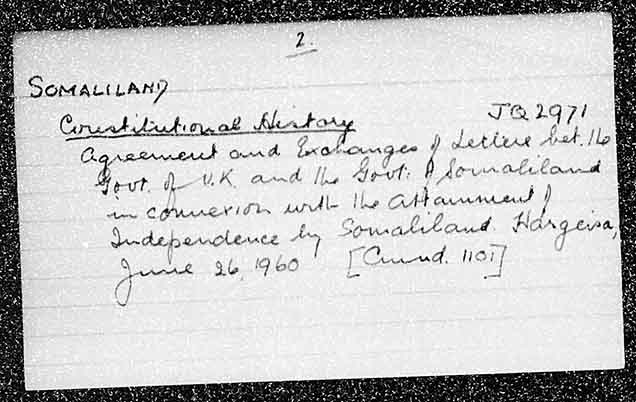 2.
SOMALILAND
Constitutional History JQ 2971
Agreement and Exchanges of Letters bet. the
Govt. of U.K. and the Govt. of Somaliland
in connexion with the Attainment of
Independence by Somaliland. Hargeisa,
June 26, 1960 [Cmnd. 1101]